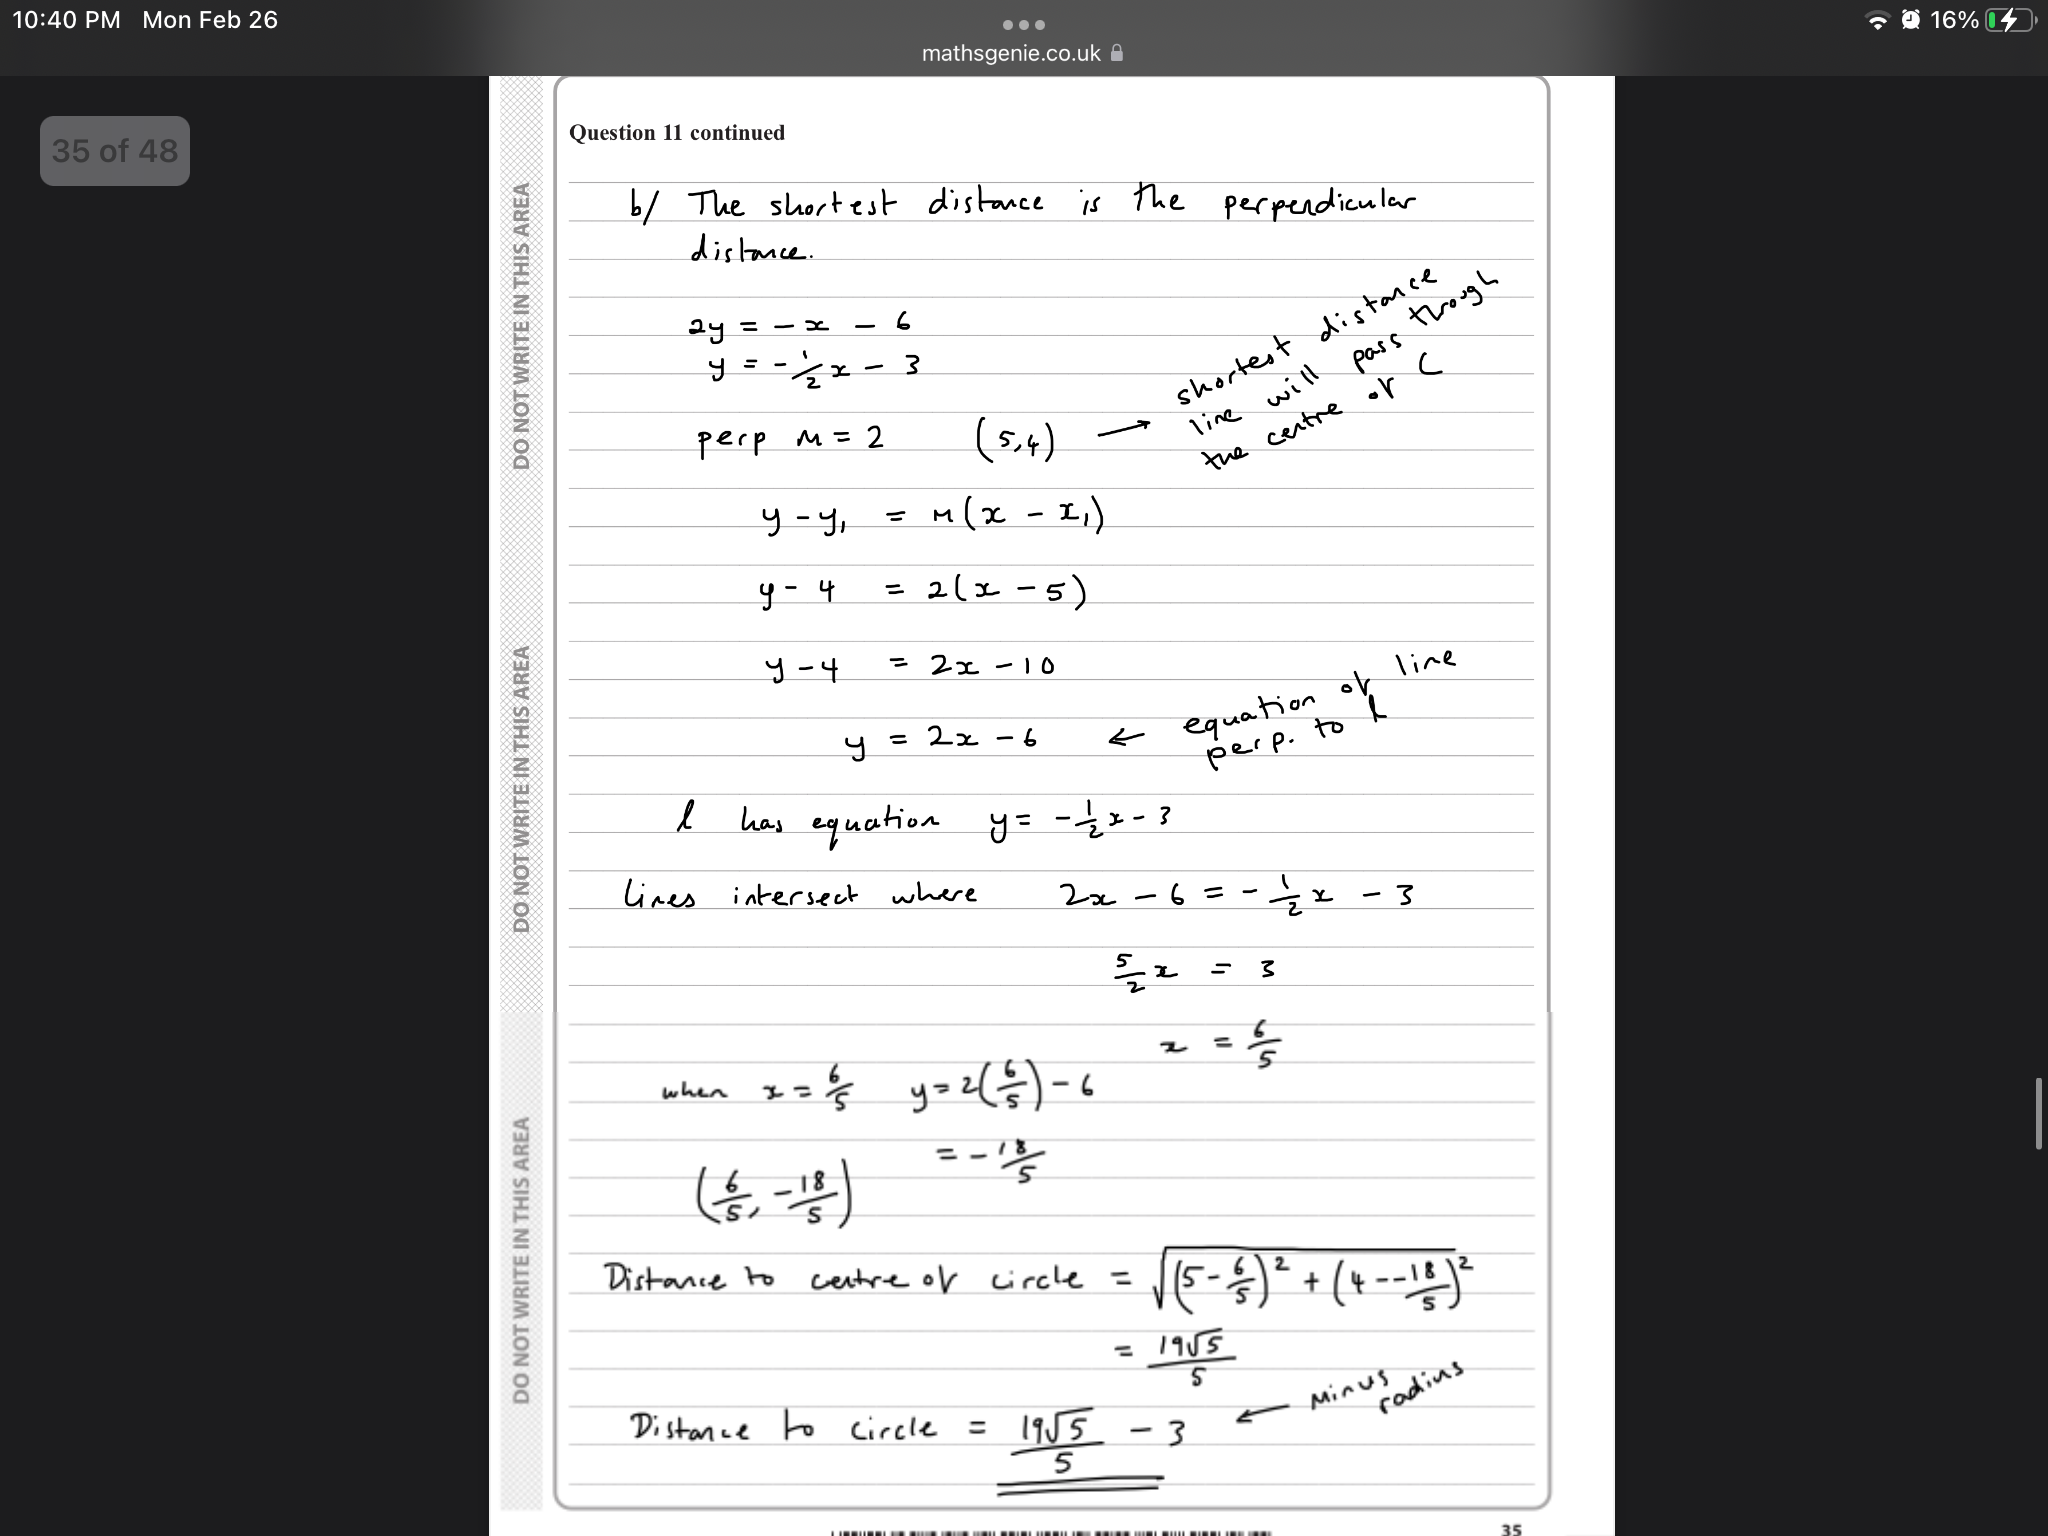 10:40 PM Mon Feb 26
16%
mathsgenie.co.uk
35 of 48
DO NOT WRITE IN THIS AREA
DO NOT WRITE IN THIS AREA
DO NOT WRITE IN THIS AREA
Question 11 continued
b/ The shortest distance is the perpendicular
distance.
2y = -x - 6
y = -1/2 x - 3
perp m = 2 (5,4) → shortest distance
line will pass through
the centre of C
y - y₁ = m(x - x₁)
y - 4 = 2(x - 5)
y - 4 = 2x - 10
y = 2x - 6 ← equation of line
perp. to l
l has equation y = -1/2 x - 3
lines intersect where 2x - 6 = -1/2 x - 3
5/2 x = 3
x = 6/5
when x = 6/5 y = 2(6/5) - 6
= -18/5
(6/5, -18/5)
Distance to centre of circle = √((5 - 6/5)² + (4 - -18/5)²)
= 19√5/5
Distance to circle = 19√5/5 - 3 ← minus
radius
35